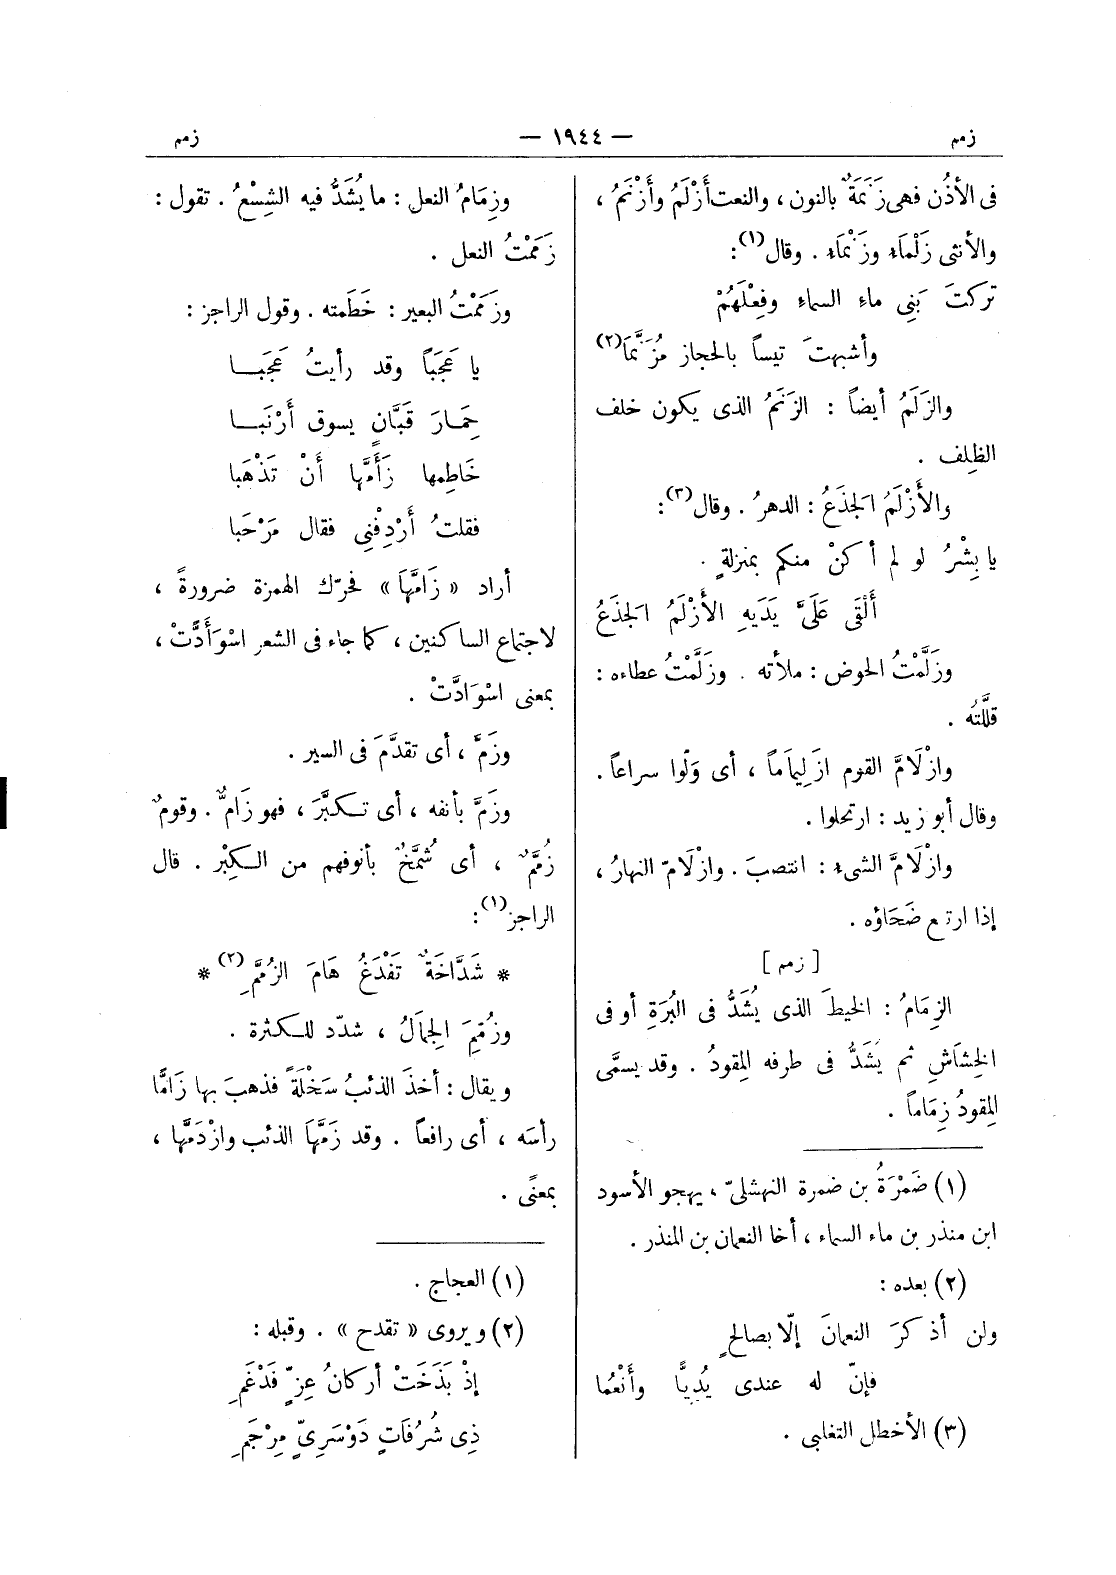 زمم — ١٩٤٤ — زمم
فى الأذُن فهى زَنَمَةٌ بالنون ، والنعت أَزْلَمُ وأَزْنَمُ ،
والأنثى زَلْمَاء وزَنْمَاء . وقال (١) :
تركتَ بَنِى ماءِ السماءِ وفِعْلَهُمْ
وأشبهتَ تيساً بالحجاز مُزَنَّمَا (٢)
والزَلَمُ أيضاً : الزَنَمُ الذى يكون خلف
الظِلف .
والأَزْلَمُ الجَذَعُ : الدهرُ . وقال (٣) :
يا بِشْرُ لو لم أكنْ منكم بمنزلةٍ .
أَلْقَى عَلَىَّ يَدَيهِ الأَزْلَمُ الجَذَعُ
وزَلَّمْتُ الحوض : ملأته . وزَلَّمْتُ عطاءه :
قلَّلتُه .
وازْلَامَّ القوم ازلِيمَاماً ، أى وَلّوا سراعاً .
وقال أبو زيد : ارتحلوا .
وازْلَامَّ الشىء : انتصبَ . وازْلَامّ النهارُ ،
إذا ارتفع ضَحَاؤه .
[ زمم ]
الزِمَامُ : الخيطَ الذى يُشَدُّ فى البُرَةِ أو فى
الخِشَاشِ ثم يُشَدُّ فى طرفه المِقودُ . وقد يسمَّى
المِقودُ زِمَاماً .
(١) ضَمْرَةُ بن ضمرة النهشلىّ ، يهجو الأسود
ابن منذر بن ماء السماء ، أخا النعمان بن المنذر .
(٢) بعده :
ولن أذكرَ النعمانَ إلّا بصالحٍ
فإنّ له عندى يُدِيًّا وأَنْعُما
(٣) الأخطل التغلبى .
وزِمَامُ النعل : ما يُشَدُّ فيه الشِسْعُ . تقول :
زَمَمْتُ النعل .
وزَمَمْتُ البعير : خَطَمته . وقول الراجز :
يا عَجَبَاً وقد رأيتُ عَجَبَــا
حِمَـارَ قَبَّانٍ يسوق أَرْنَبَــا
خَاطِمها زَأَمَّها أَنْ تَذْهَبا
فقلتُ أَرْدِفْنِى فقال مَرْحَبا
أراد « زَامَّهَا » فحرّك الهمزة ضرورةً ،
لاجتماع الساكنين ، كما جاء فى الشعر اسْوَأَدَّتْ ،
بمعنى اسْوَادَّتْ .
وزَمَّ ، أى تقدَّمَ فى السير .
وزَمَّ بأنفه ، أى تكبَّرَ ، فهو زَامٌّ . وقومٌ
زُمَّمٌ ، أى شُمَّخٌ بأنوفهم من الكِبْر . قال
الراجز (١) :
* شَدَّاخَةٌ تَفْدَغُ هَامَ الزُمَّمِ (٢) *
وزُمِّمَ الجِمَالُ ، شدّد للكثرة .
ويقال : أخذَ الذئبُ سَخْلَةً فذهبَ بها زَامًّا
رأسَه ، أى رافعاً . وقد زَمَّهَا الذئب وازْدَمَّها ،
بمعنًى .
(١) العجاج .
(٢) ويروى « تقدح » . وقبله :
إذْ بَذَخَتْ أركانُ عِزٍّ فَدْغَمِ
ذِى شُرُفَاتٍ دَوْسَرِىٍّ مِرْجَمِ